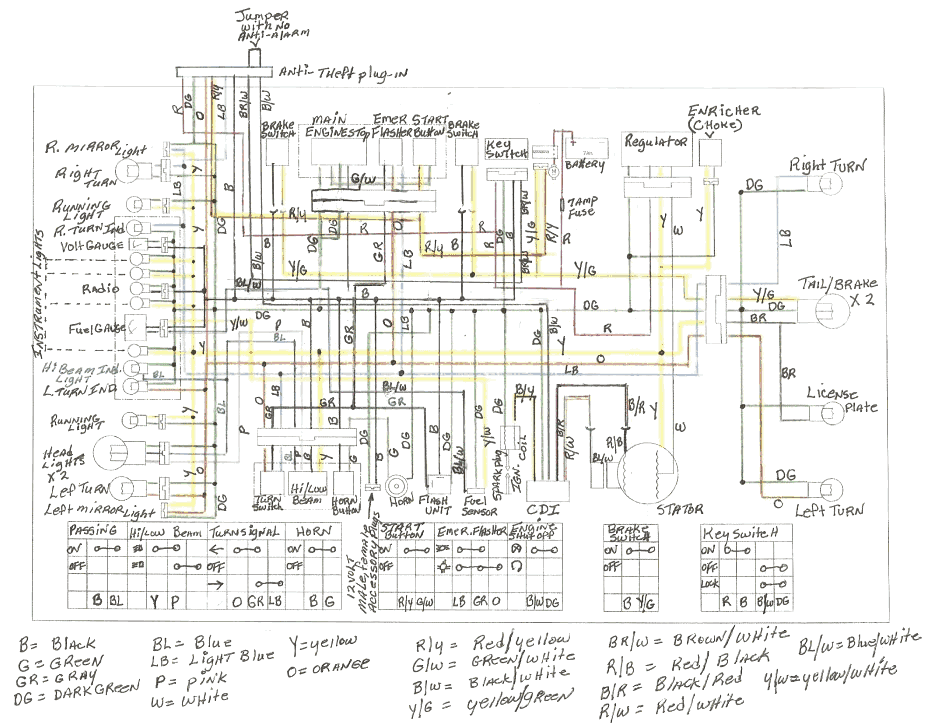 Jumper
with no
Anti-alarm
Anti-Theft plug-in
R
DG
O
R/y
LB
B
BR/W
B/W
BRAKE
Switch
MAIN
ENGINE STOP
EMER
FLASHER
START
Button
BRAKE
Switch
Key
Switch
BATTERY
7AMP
Fuse
Regulator
ENRICHER
(CHOKE)
R. MIRROR Light
Right
TURN
RUNNING
Light
R. TURN Ind.
Volt GAUGE
RADIO
Fuel GAUGE
INSTRUMENT Lights
Hi BEAM IND.
Light
L. TURN IND.
RUNNING
Light
HeAD
Lights
X2
Left TURN
Left mirror Light
Right TURN
TAIL/BRAKE
X 2
License
PLATE
Left Turn
DG
LB
Y/G
DG
BR
BR
DG
O
G/W
R/y
R
Y/G
BL/W
B/W
GR
LB
DG
R
O
LB
Turn
Switch
Hi/Low
BEAM
HORN
Button
HORN
FLASH
UNIT
Fuel
Sensor
SPARK plug
IGN. COIL
CDI
STATOR
12 VOLT
MALE, female
ACCESSORY Plugs
PASSING Hi/Low Beam TURN SIGNAL HORN
ON ON ON
OFF OFF OFF
B BL Y P O GR LB B G
START
Button EMER. FlASHER ENGINE
SHUT OFF
ON
OFF
R/y G/W LB GR O B/W DG
BRAKE
SWitcH
ON
OFF
B Y/G
Key SwitcH
ON
OFF
LOCK
R B B/W DG
B= Black
G= GREEN
GR= GRAY
DG= DARK GREEN
BL= Blue
LB= LIGHT Blue
P= PiNK
W= WHITE
Y=yellow
O= ORANGE
R/y = Red/yellow
G/W = GREEN/WHITE
B/W = Black/WHITE
Y/G = yellow/GREEN
BR/W= BROWN/WHITE
R/B = Red/Black
B/R = Black/Red
R/W = Red/WHITE
BL/W=Blue/WHITE
Y/W=yellow/WHITE